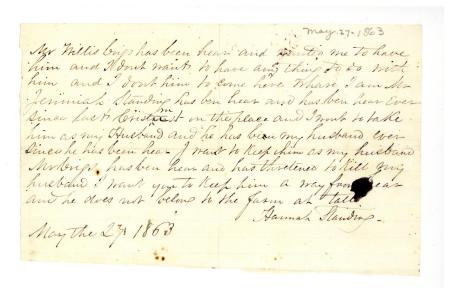 may-27-1863
Mr Willis Gris has been hear and wantin me to have
him and I dont want to have any thing to do with
him and I dont him to come here whare I am Mr
Jerimiah Standing has ben hear and has ben hear ever
since last Cristmst on the place and I want to take
him as my Husband and he has been my husband ever
since he has been hear I want to keep him as my husband
Mr has ben hear and has thretened to kill my
husband I want you to keep him a way from hear
and he does not belong to the farm at tall
Hannah Standing
May the 27 1863